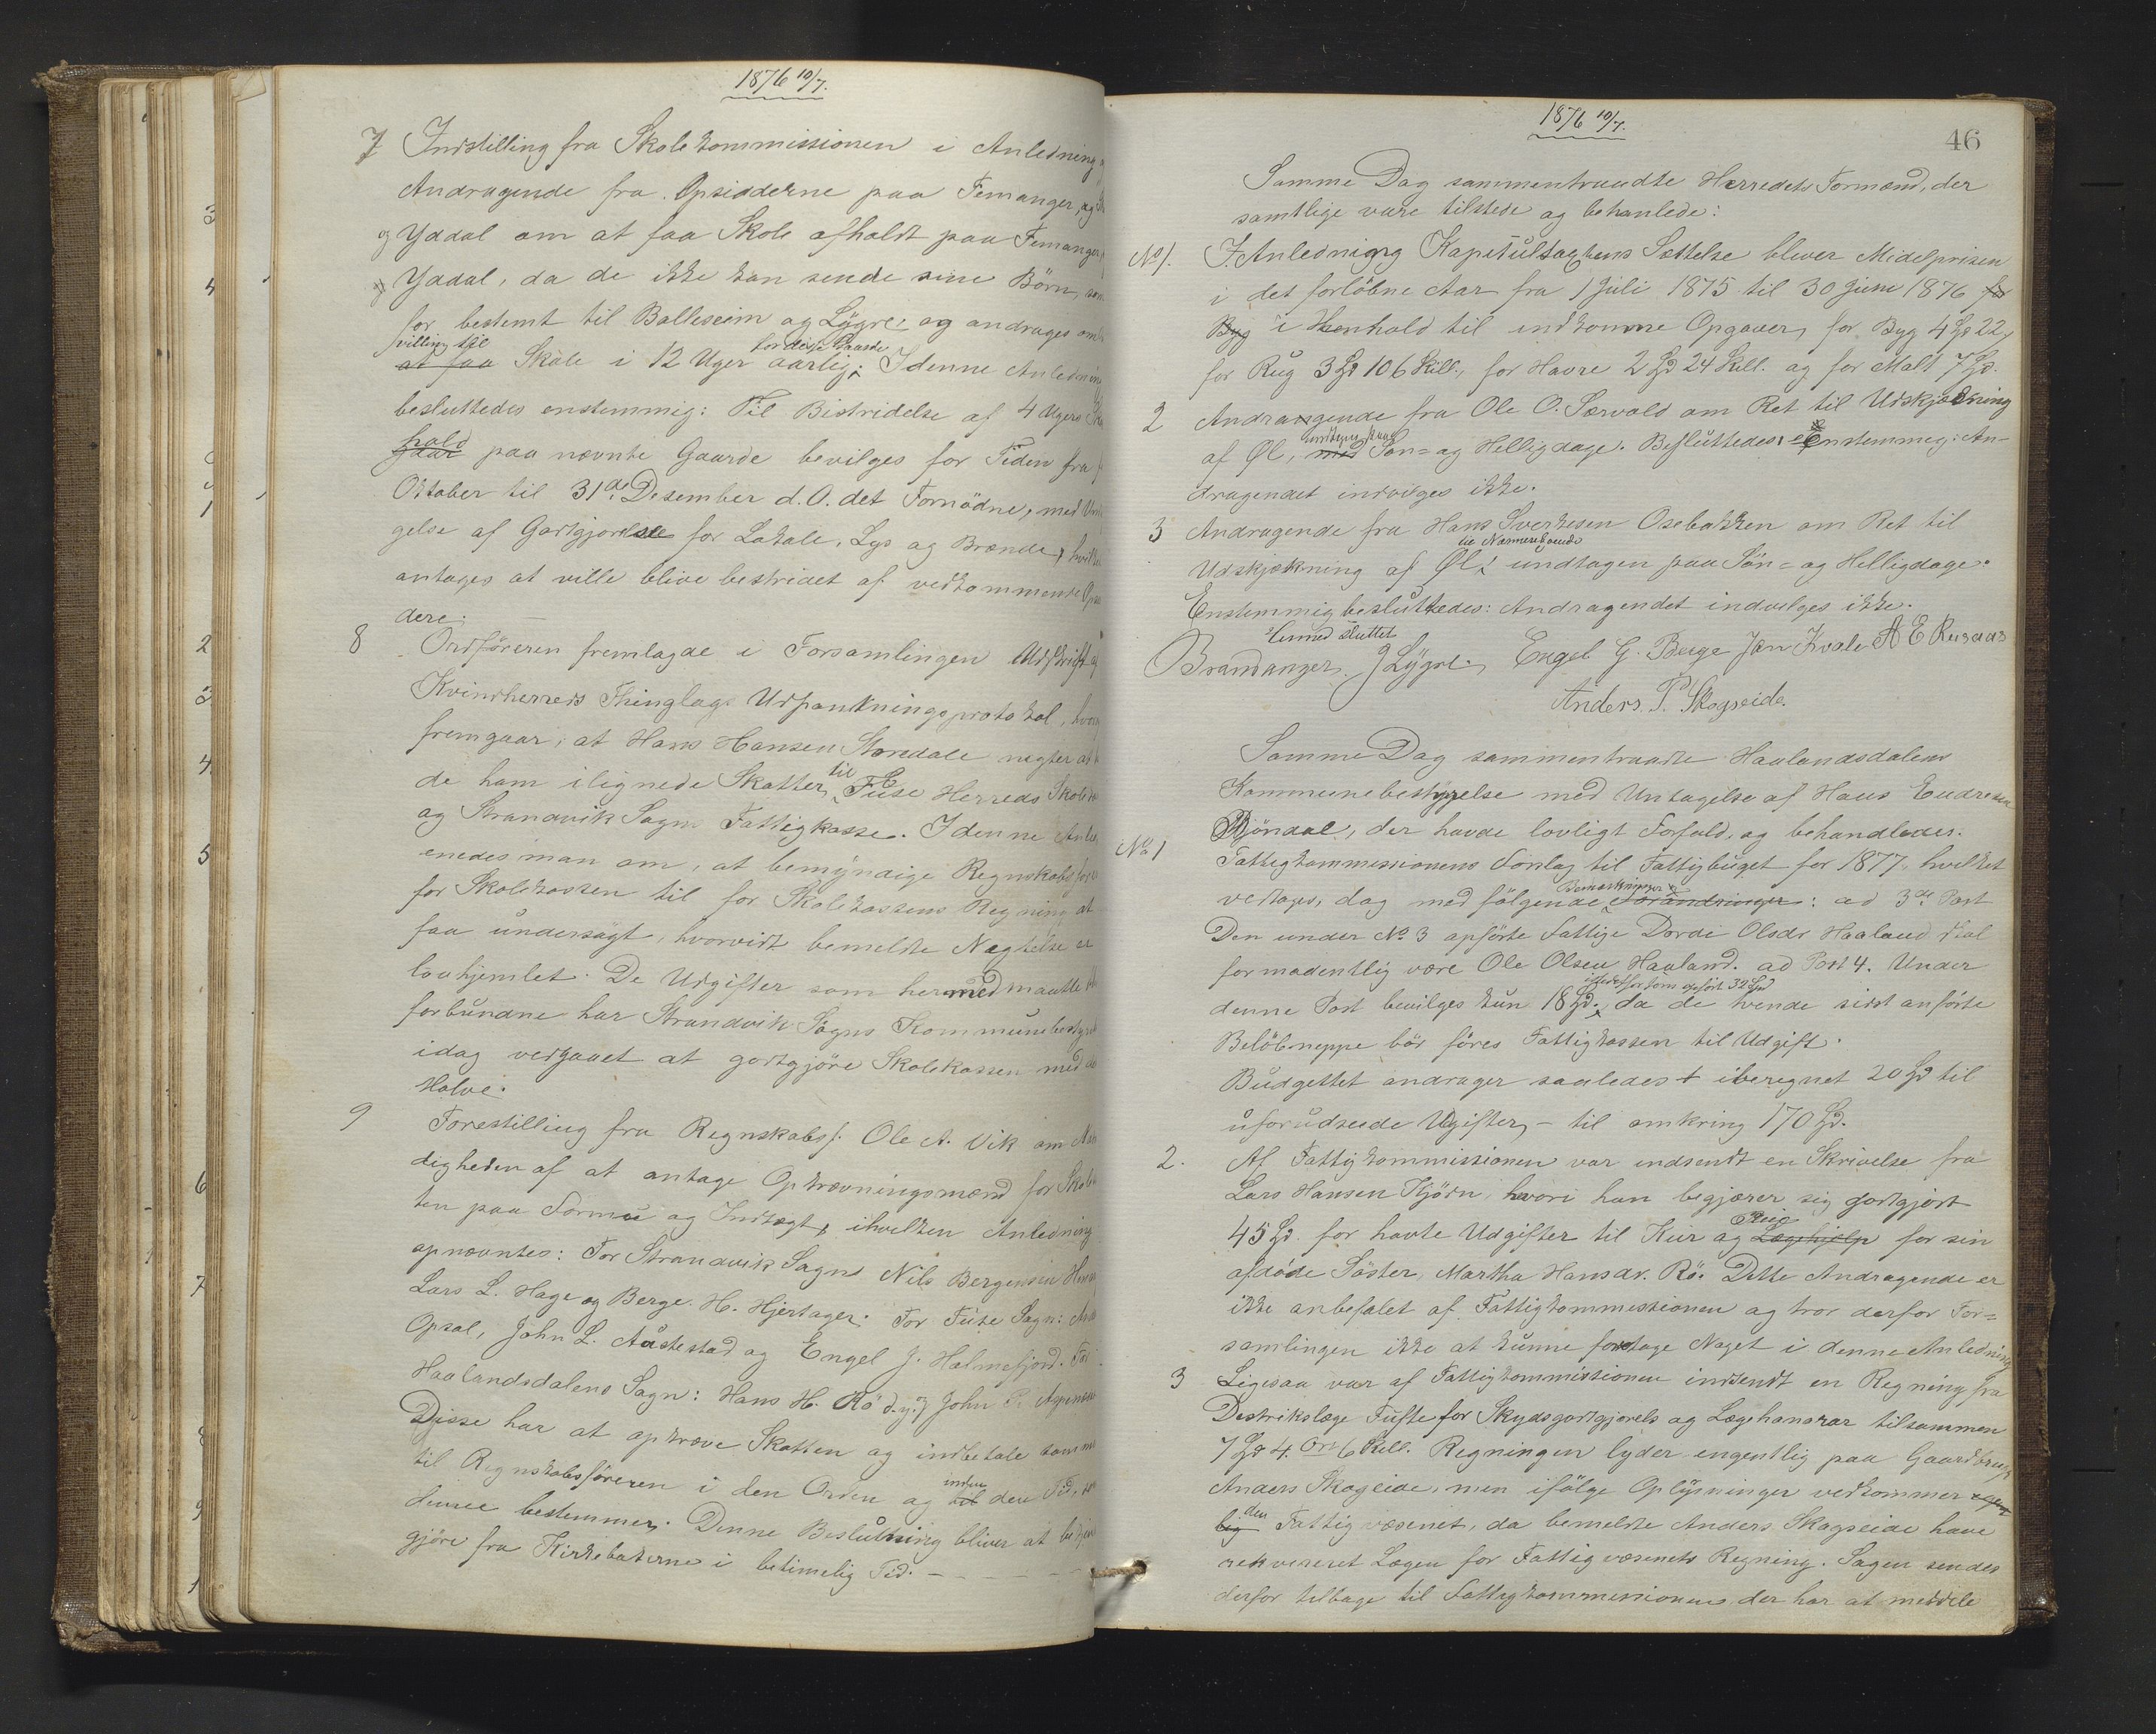 1876 10/7.
7 Indstilling fra Skolekommissionen i Anledning
Andragende fra Opsidderne paa Femanger, og
og Yddal om at faa Skole afholdt paa Femanger
og Yddal, da de ikke kan sende sine Börn, som
før bestemt til Balleseim og Lygre; og andrages om
villing til for disse Gaarde
at faa Skole i 12 Uger aarlig. I denne Anledning
besluttedes enstemmig: Til Bistridelse af 4 Ugers
hold
paa nævnte Gaarde bevilges for Tiden fra
Oktober til 31de Desember d. O. det Fornödne, med
gelse af Godtgjorelse for Lokale, Lys og Brænde, hvilke
antages at ville blive bestridet af vedkommende
dere.
8 Ordföreren fremlagde i Forsamlingen Udskrift af
Kvindherreds Thinglags Udpantningsprotokol, hvoraf
fremgaar, at Hans Hansen Storedale negter at
de ham ilignede Skatter til Fuse Herreds Skole
og Strandvik Sogns Fattigkasse. I denne
enedes man om, at bemyndige Regnskabsförer
for Skolekassen til for Skolekassens Regning at
faa undersögt, hvorvidt bemeldte Negtelse er
lovhjemlet. De Udgifter som hermed maatte
forbundne har Strandvik Sogns Kommunebestyrelse
idag vedtaget at godtgjöre Skolekassen med det
Halve.
9 Forestilling fra Regnskabsf. Ole A. Vik om
digheden af at antage Opkrævningsmænd for
ten paa Formue og Indtægt, i hvilken Anledning
opnævntes: For Strandvik Sogn Nils Bergesen
Lars L. Hage og Berge H. Hjertager. For Fuse Sogn:
Opsal, John L. Austestad og Engel J. Holmefjord. For
Haalandsdalens Sogn: Hans H. Rö d.y. og John
Disse har at opkræve Skatten og indbetale samme
til Regnskabsföreren i den Orden og inden til den Tid, som
denne bestemmer. Denne Beslutning bliver at bekjendt
gjöre fra Kirkebakkerne i betimelig Tid. - - - - -
1876 10/7.
46
Samme Dag sammentraadte Herredets Formænd, der
samtlige vare tilstede og behanlede:
No 1. I Anledning Kapitulstaxtens Sættelse bliver Midelprisen
i det forlöbne Aar fra 1 Juli 1875 til 30 Juni 1876 for
Byg i Henhold til indkomne Opgaver, for Byg 4 Spd 22,
for Rug 3 Spd 106 Skill., for Havre 2 Spd 24 Skill. og for Malt 7 Spd.
2 Andragende fra Ole O. Sævold om Ret til Udskjænkning
undtagen paa
af Øl, med Søn- og Helligdage. Besluttedes Enstemmeg: An-
dragendet indvilges ikke.
3 Andragende fra Hans Sverkesen Osebakken om Ret til
Udskjækning af Øl, undtagen paa Sön- og Helligdage.
Enstemmig besluttedes: Andragendet indvilges ikke.
Hermed sluttet
Brandanger. J Lygre. Engel G. Berge Jon Kvale A E Rusaas
Anders P. Skogseide.
Samme Dag sammentraadte Haalandsdalens
Kommunebestyrelse med Untagelse af Hans Endresen
Björndal, der havde lovligt Forfald, og behandledes.
No 1 Fattigkommissionens Forslag til Fattigbuget for 1877, hvilket
Bemærkninger
vedtoges, dog med fölgende Forandringer: ad 3de Post
Den under No 3 opförte Fattige Dorde Olsdr Haaland skal
formodentlig være Ole Olsen Haaland. ad Post 4. Under
istedetfor som opfört 32 Spd
denne Post bevilges kun 18 Spd., da de tvende sidst anförte
Belöb neppe bör föres Fattigkassen til Udgift.
Budgettet andrager saaledes + iberegnet 20 Spd til
uforudseede Udgifter, - til omkring 170 Spd.
2. Af Fattigkommissionen var indsendt en Skrivelse fra
Lars Hansen Tjörn, hvori han begjærer sig godtgjort
Pleie
45 Spd. for havte Udgifter til Kur og Lægehjelp for sin
afdöde Söster, Martha Hansdr. Rö. Dette Andragende er
ikke anbefalet af Fattigkommissionen og tror derfor For-
samlingen ikke at kunne foretage Noget i denne Anledning
3 Ligesaa var af Fattigkommissionen indsendt en Regning fra
Destrikslæge Tufte for Skydsgodtgjørels og Lægehonorar tilsammen
7 Spd 4 Ort 6 Skill. Regningen lyder engentlig paa Gaardbruger
Anders Skogseide, men ifölge Oplysninger vedkommer
den Fattigvæsenet, da bemeldte Anders Skogseide have
rekvereret Lægen for Fattigvæsenets Regning. Sagen sendes
derfor tilbage til Fattigkommissionen, der har at meddele